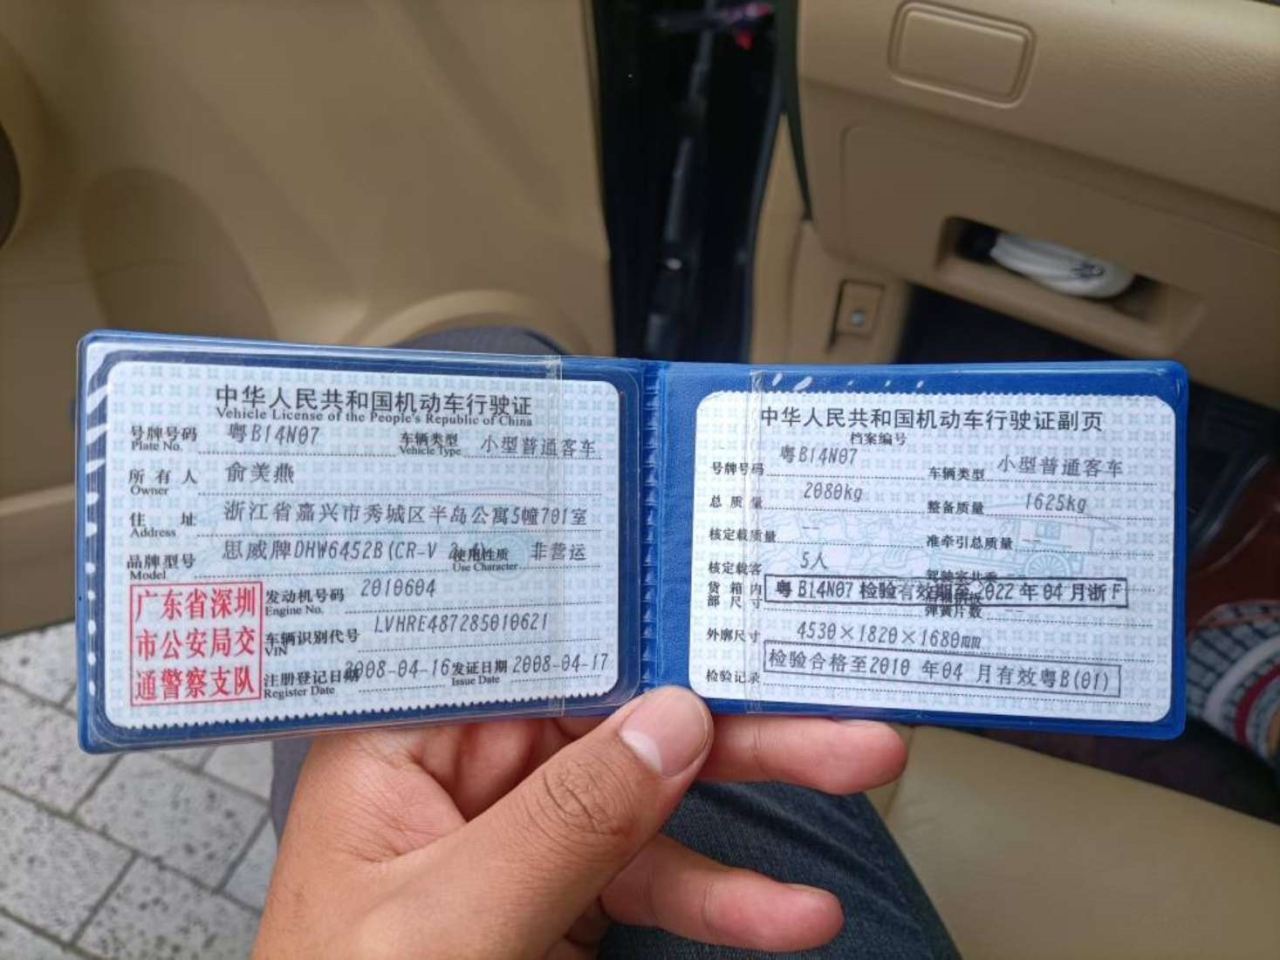 中华人民共和国机动车行驶证
Vehicle License of the People's Republic of China
号牌号码 粤B14N07 车辆类型 小型普通客车
Plate No. Vehicle Type
所有人 俞美燕
Owner
住址 浙江省嘉兴市秀城区半岛公寓5幢701室
Address
品牌型号 思威牌DHW6452B(CR-V 使用性质 非营运
Model Use Character
广东省深圳
市公安局交
通警察支队
发动机号码 2010604
Engine No.
车辆识别代号 LVHRE487285010621
VIN
注册登记日期 2008-04-16 发证日期 2008-04-17
Register Date Issue Date
中华人民共和国机动车行驶证副页
档案编号
号牌号码 粤B14N07 车辆类型 小型普通客车
总质量 2080kg 整备质量 1625kg
核定载质量 -- 准牵引总质量 --
核定载客 5人
货箱内
部尺寸
粤B14N07 检验有效期至2022年04月浙F
外廓尺寸 4530×1820×1680mm
检验记录 检验合格至2010年04月有效粤B(01)